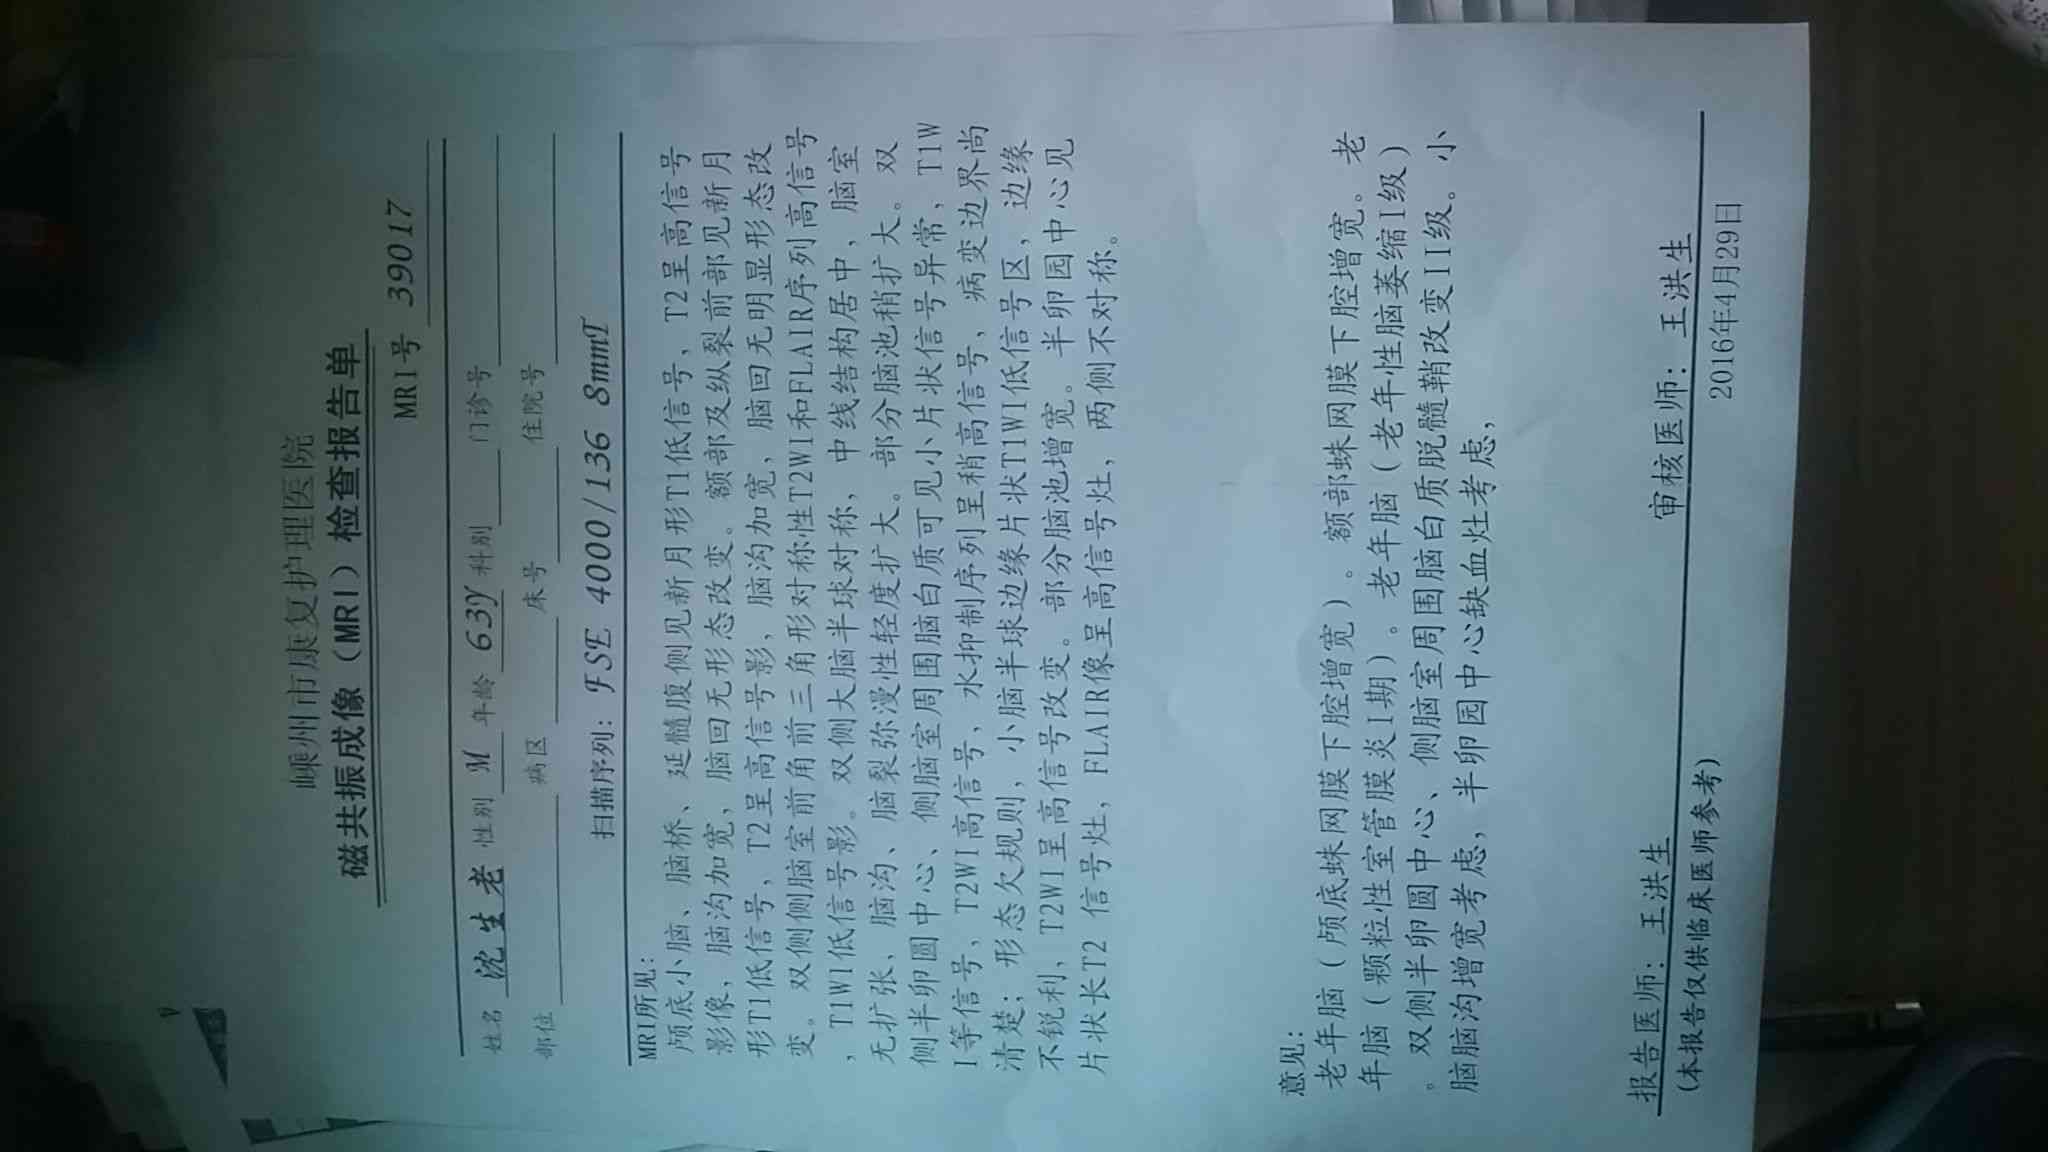 嵊州市康复护理医院
磁共振成像（MRI）检查报告单
MRI号 39017
姓名 沈生老 性别 M 年龄 63Y 科别 门诊号
部位 病区 床号 住院号
扫描序列：FSE 4000/136 8mmT
MRI所见：
颅底小脑、脑桥、延髓腹侧见新月形T1低信号，T2呈高信号
影像，脑沟加宽，脑回无形态改变。额部及纵裂前部见新月
形T1低信号，T2呈高信号影，脑沟加宽，脑回无明显形态改
变。双侧侧脑室前角前三角形对称性T2WI和FLAIR序列高信号
，T1WI低信号影。双侧大脑半球对称，中线结构居中，脑室
无扩张、脑沟、脑裂弥漫性轻度扩大。部分脑池稍扩大。双
侧半卵圆中心、侧脑室周围脑白质可见小片状信号异常，T1W
I等信号、T2WI高信号，水抑制序列呈稍高信号、病变边界尚
清楚；形态欠规则，小脑半球边缘片状T1WI低信号区，边缘
不锐利，T2WI呈高信号改变。部分脑池增宽。半卵园中心见
片状长T2 信号灶，FLAIR像呈高信号灶，两侧不对称。
意见：
老年脑（颅底蛛网膜下腔增宽）。额部蛛网膜下腔增宽。老
年脑（颗粒性室管膜炎I期）。老年脑（老年性脑萎缩I级）
。双侧半卵圆中心、侧脑室周围脑白质脱髓鞘改变II级。小
脑脑沟增宽考虑，半卵园中心缺血灶考虑，
报告医师：王洪生 审核医师：王洪生
（本报告仅供临床医师参考） 2016年4月29日